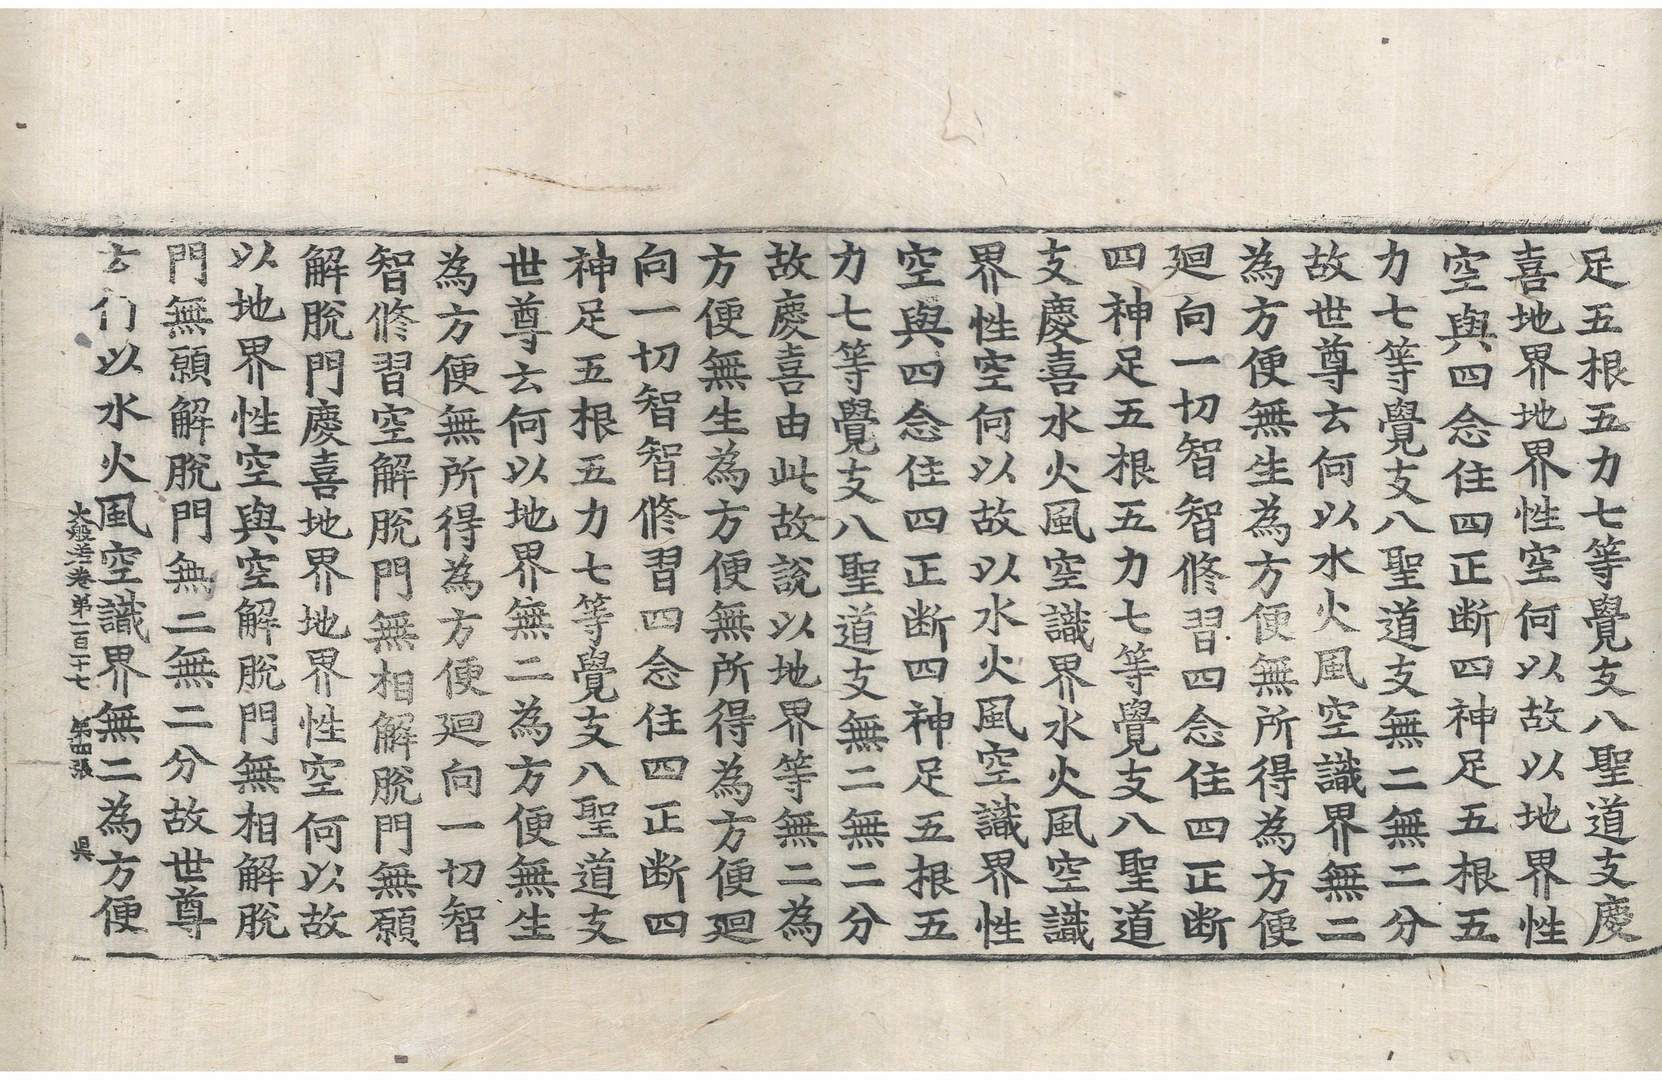 足五根五力七等覺支八聖道支慶
喜地界地界性空何以故以地界性
空與四念住四正断四神足五根五
力七等覺支八聖道支無二無二分
故世尊云何以水火風空識界無二
為方便無生為方便無所得為方便
廻向一切智智修習四念住四正断
四神足五根五力七等覺支八聖道
支慶喜水火風空識界水火風空識
界性空何以故以水火風空識界性
空與四念住四正断四神足五根五
力七等覺支八聖道支無二無二分
故慶喜由此故說以地界等無二為
方便無生為方便無所得為方便廻
向一切智智修習四念住四正断四
神足五根五力七等覺支八聖道支
世尊云何以地界無二為方便無生
為方便無所得為方便廻向一切智
智修習空解脫門無相解脫門無願
解脫門慶喜地界地界性空何以故
以地界性空與空解脫門無相解脫
門無願解脫門無二無二分故世尊
云何以水火風空識界無二為方便
大般若卷第一百一十七 第四張 昃